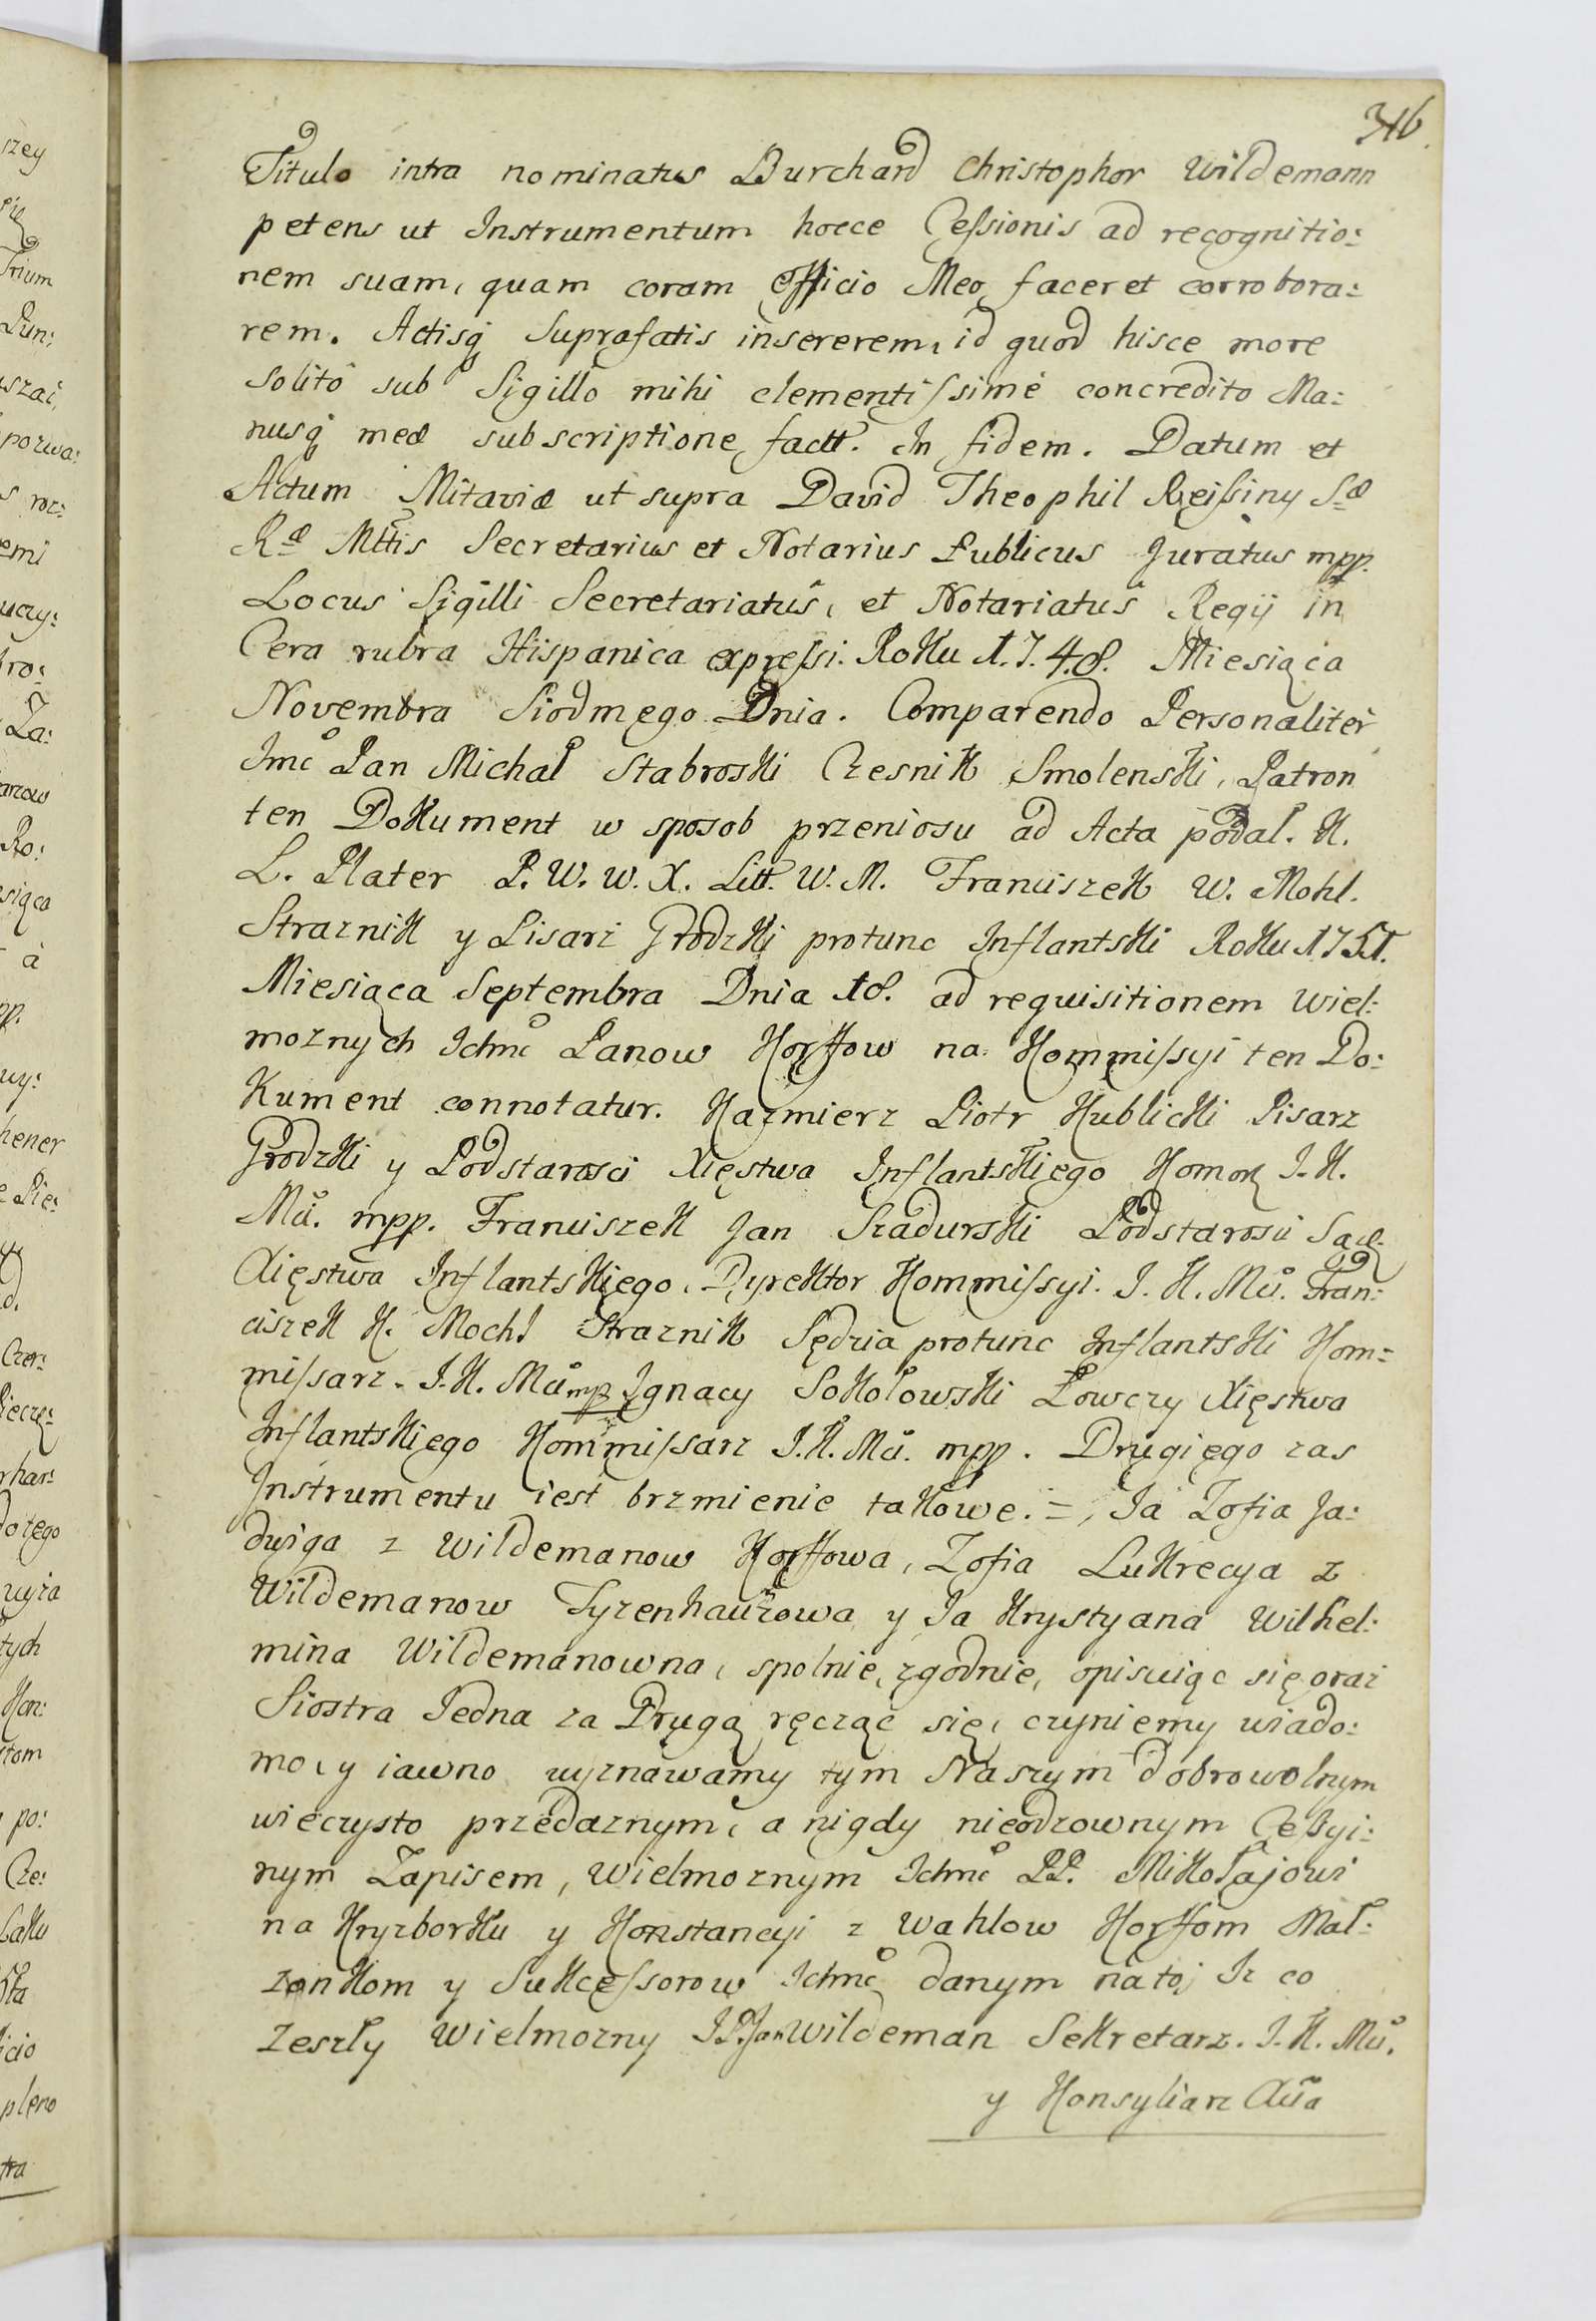 316.
Titulo intra nominatus Burchard Christophor Wildemann
petens ut Instrumentum hocce Cessionis ad recognitio:
nem suam, quam coram Officio Meo faceret corrobora:
rem. Actisq Suprafatis insererem, id quod hisce more
Solito sub Sigillo mihi clementissime concredito Ma:
nusq meæ subscriptione factt. In fidem. Datum et
Actum Mitaviæ ut supra David Theophil Reissiny Sæ
Ræ Mttis Secretarius et Notarius Publicus Juratus mpp.
Locus Sigilli Secretariatus, et Notariatus Regij in
Cera rubra Hispanica expressi. Roku 1.7.4.8. Miesiąca
Novembra Siodmego Dnia. Comparendo Personaliter
Jmc Pan Michał Stabroski Czesnik Smolenski, Patron
ten Dokument w sposob przeniosu ad Acta podał. K.
L. Plater P. W. W. X. Litt. W. M. Franciszek W. Mohl.
Straznik y Pisarz Grodzki protunc Inflantski Roku 1751.
Miesiąca Septembra Dnia 18. ad requisitionem Wiel:
moznych Ichmc Panow Korffow na Kommissyi ten Do:
kument connotatur. Kazmierz Piotr Kublicki Pisarz
Grodzki y Podstarosci Xięstwa Inflantskiego Komor J. K.
Mci. mpp. Franciszek Jan Szadurski Podstarosci Sąd.
Xięstwa Inflantskiego, Dyrektor Kommissyi. J. K. Mci. Fran:
ciszek K. Mochl Straznik Sędzia protunc Inflantski Kom=
missarz. J. K. Mci mp Ignacy Sokołowski Łowczy Xięstwa
Inflantskiego Kommissarz J. K. Mci. mpp. Drugiego zas
Instrumentu iest brzmienie takowe. =, Ja Zofia Ja:
dwiga z Wildemanow Korffowa, Zofia Lukrecya z
Wildemanow Tyzenhauzowa y Ja Krystyana Wilhel:
mina Wildemanowna, spolnie, zgodnie, opisuiąc się oraz
Siostra Jedna za Drugą ręcząc się, czyniemy wiado:
mo, y iawno wyznawamy tym Naszym dobrowolnym
wieczysto przedaznym, a nigdy nieodzownym Cessyi:
nym Zapisem, Wielmoznym Ichmc PP. Mikołajowi
na Kryzborku y Konstancyi z Wahlow Korffom Mał:
zonkom y Sukcessorow Ichmc danym na to, Iz co
zeszły Wielmozny J P. Jan Wildeman Sekretarz. J. K. Mci.
y Konsyliarz